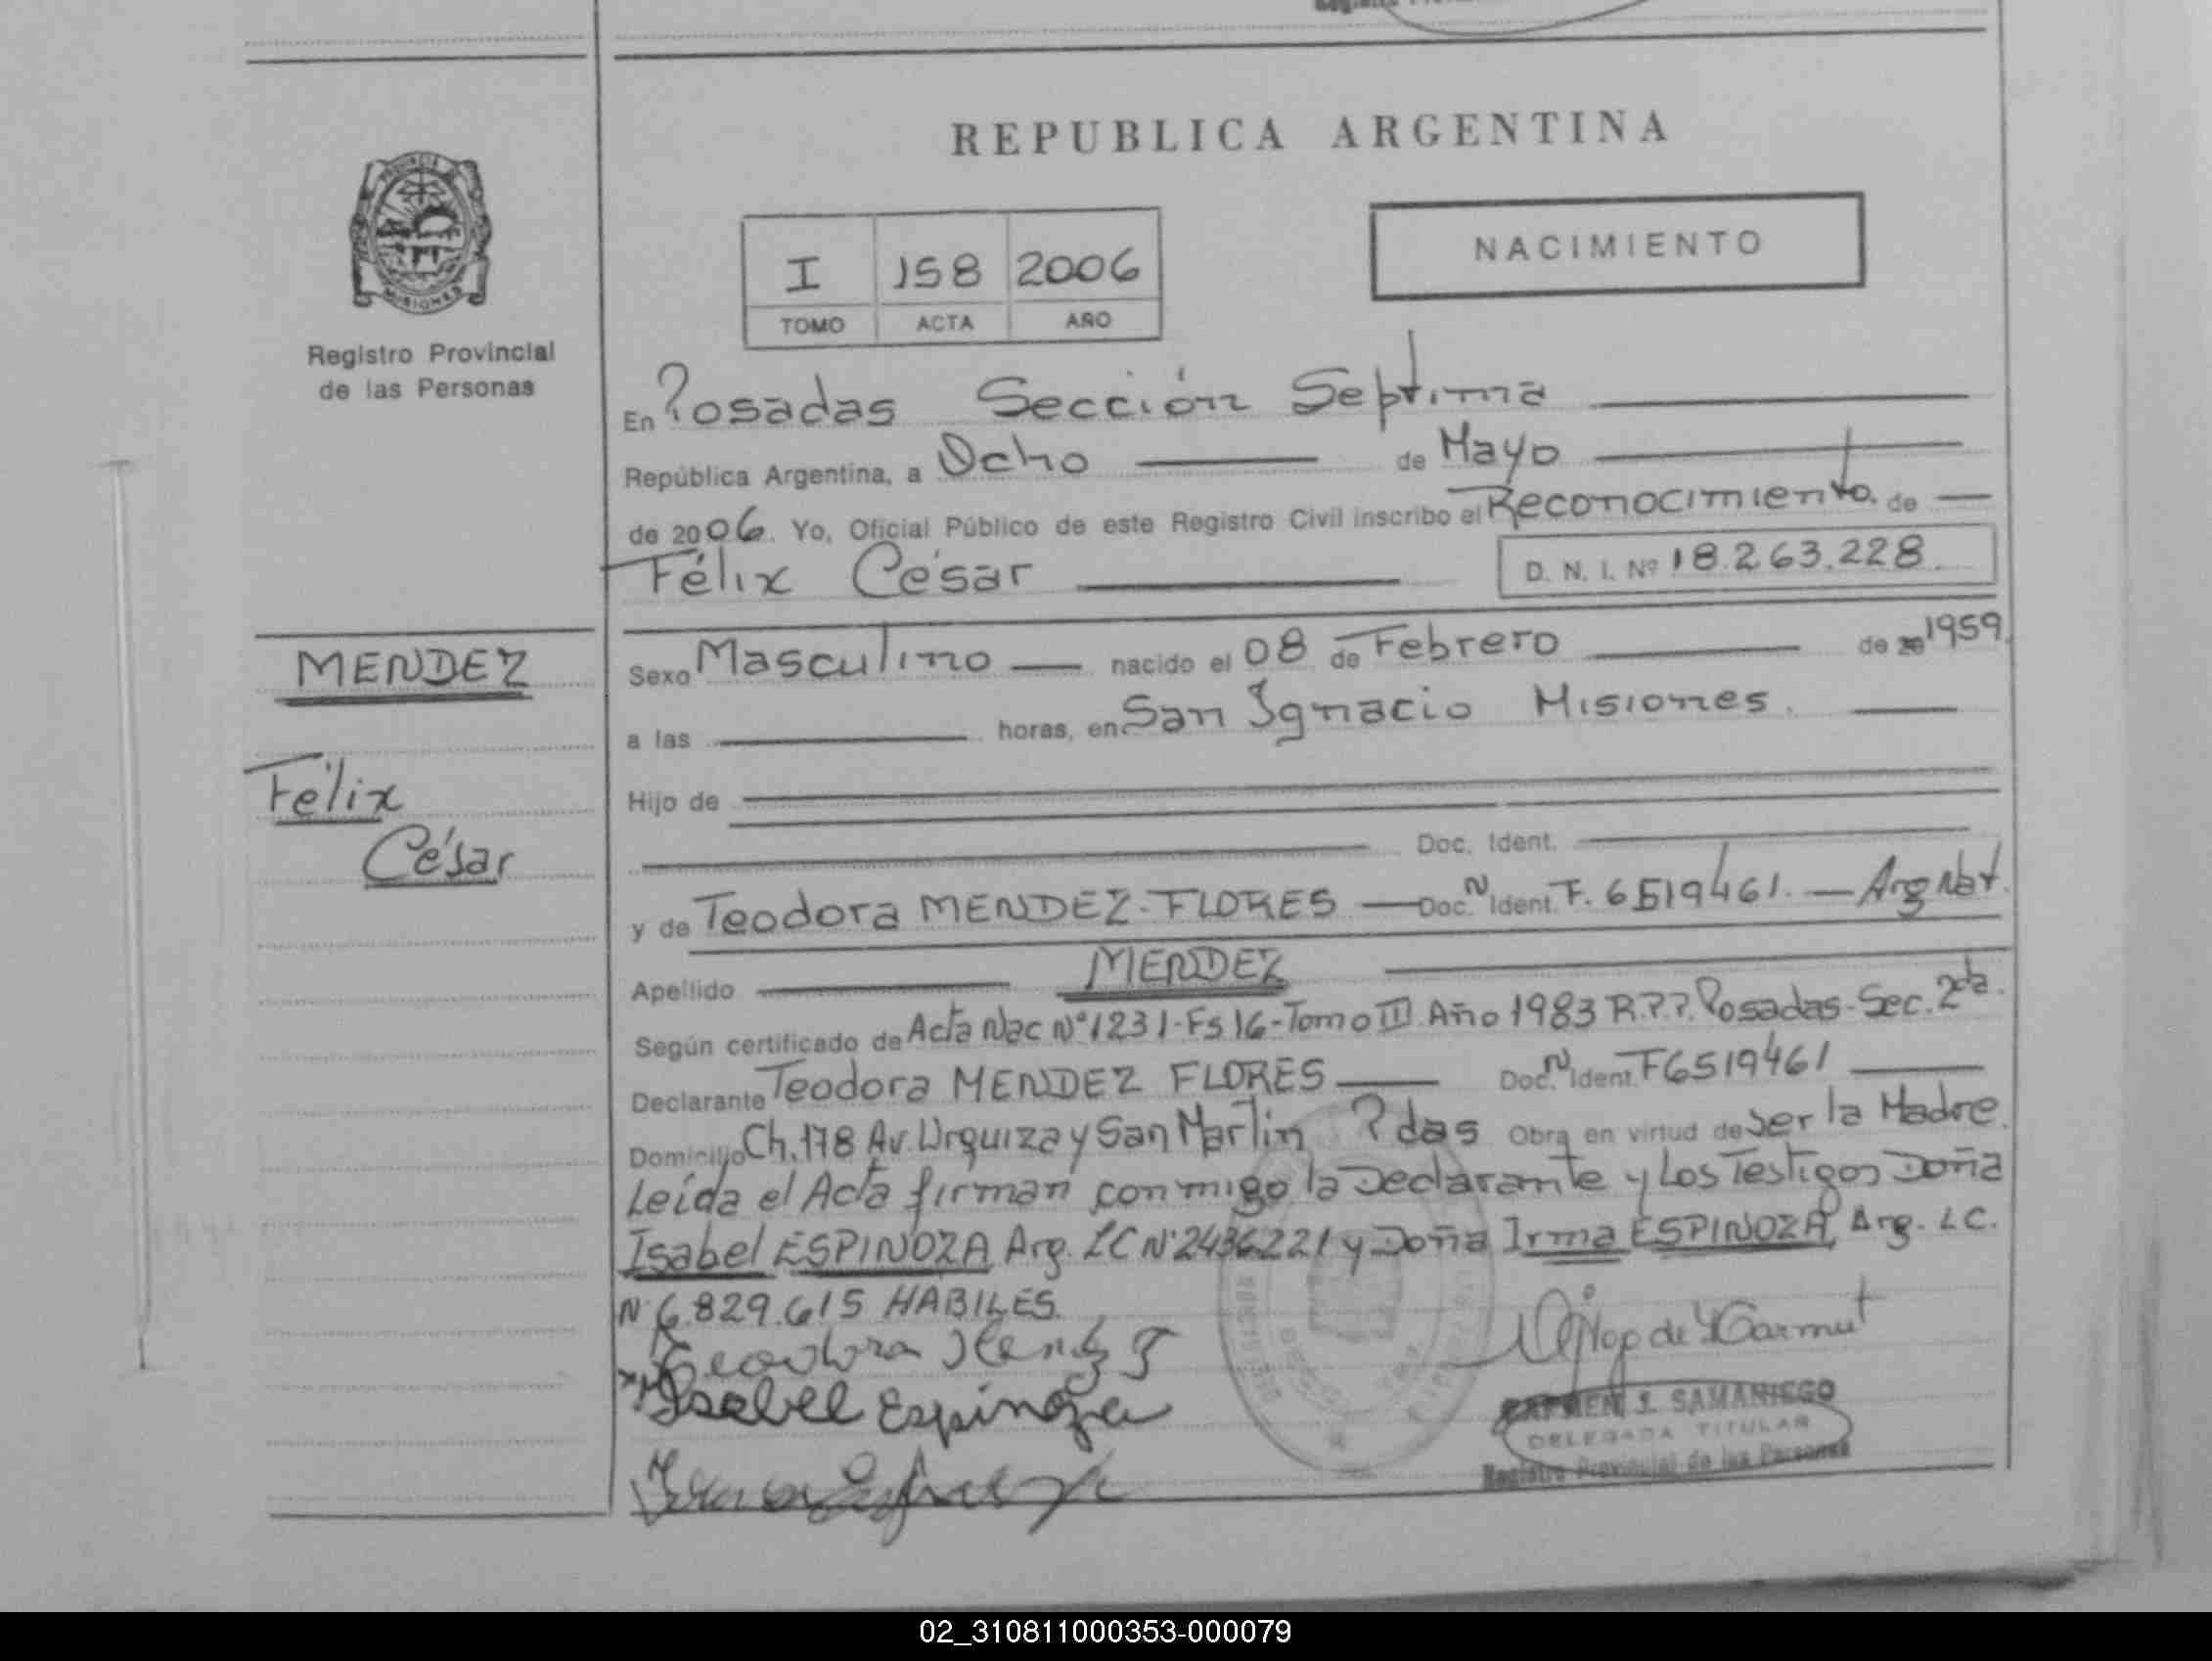 REPUBLICA ARGENTINA
PROVINCIA DE
MISIONES
Registro Provincial
de las Personas
I 158 2006
TOMO ACTA AÑO
NACIMIENTO
En Posadas Sección Septima
República Argentina, a Ocho de Mayo
de 2006. Yo, Oficial Público de este Registro Civil inscribo el Reconocimiento. de
Félix César D. N. I. Nº 18.263.228.
MENDEZ
Félix
César
Sexo Masculino nacido el 08 de Febrero de 1959.
a las horas, en San Ignacio Misiones.
Hijo de
Doc. Ident.
y de Teodora MENDEZ-FLORES Doc. N Ident. F. 6519461. Arg Nat.
Apellido MENDEZ
Según certificado de Acta Nac Nº 1231-Fs 16-Tomo III Año 1983 R.P.P. Posadas-Sec. 2da.
Declarante Teodora MENDEZ FLORES Doc. N Ident. F6519461
Domicilio Ch. 178 Av. Urquiza y San Martin Pdas Obra en virtud de Ser la Madre.
Leída el Acta firman conmigo la Declarante y Los Testigos Doña
Isabel ESPINOZA Arg. LC Nº 2436221 y Doña Irma ESPINOZA, Arg. LC.
Nº 6.829.615 HABILES.
Teodora Mendez F
Isabel Espinoza
CARMEN J. SAMANIEGO
DELEGADA TITULAR
Registro Provincial de las Personas
02_310811000353-000079